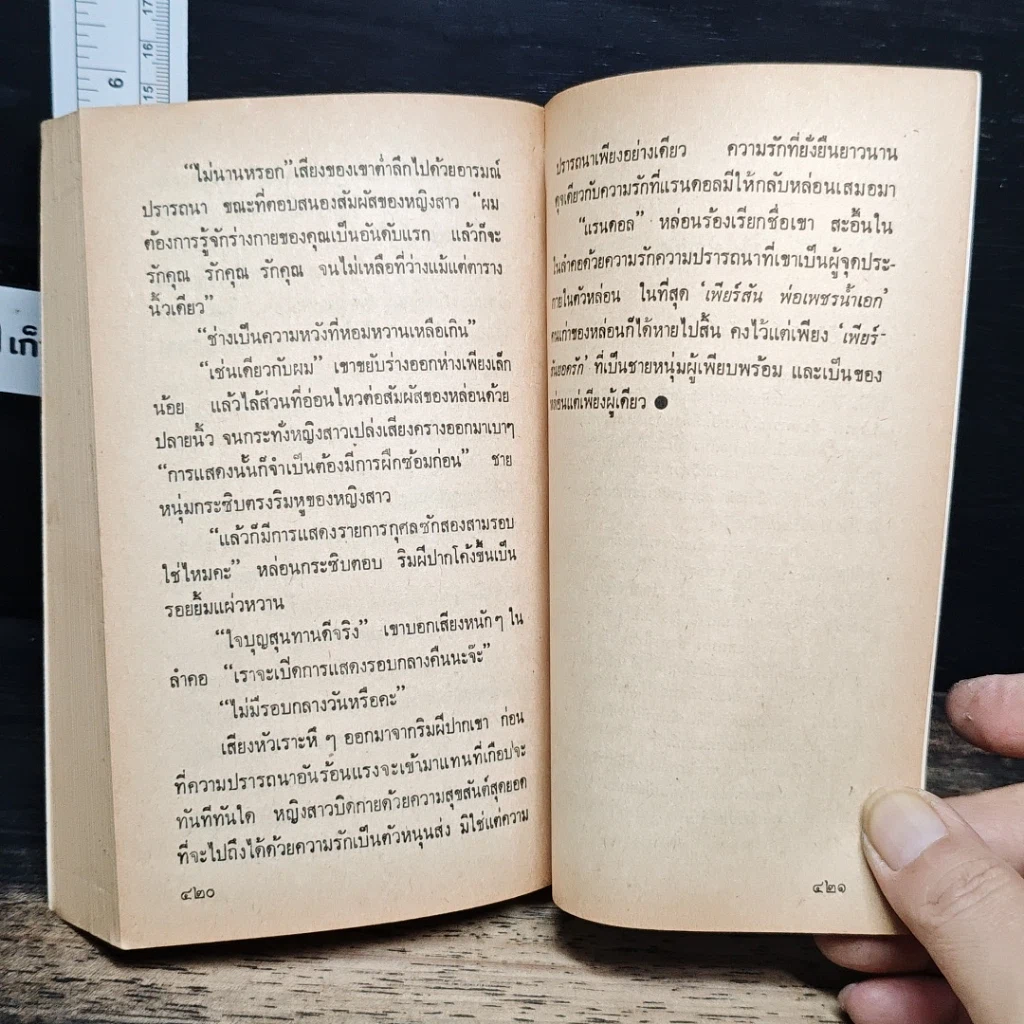 17
16
15
6
เก็
“ไม่นานหรอก” เสียงของเขาต่ำลึกไปด้วยอารมณ์
ปรารถนา ขณะที่ตอบสนองสัมผัสของหญิงสาว “ผม
ต้องการรู้จักร่างกายของคุณเป็นอันดับแรก แล้วก็จะ
รักคุณ รักคุณ รักคุณ จนไม่เหลือที่ว่างแม้แต่ตาราง
นิ้วเดียว”
“ช่างเป็นความหวังที่หอมหวานเหลือเกิน”
“เช่นเดียวกับผม” เขาขยับร่างออกห่างเพียงเล็ก
น้อย แล้วไล้ส่วนที่อ่อนไหวต่อสัมผัสของหล่อนด้วย
ปลายนิ้ว จนกระทั่งหญิงสาวเปล่งเสียงครางออกมาเบาๆ
“การแสดงนั้นก็จำเป็นต้องมีการฝึกซ้อมก่อน” ชาย
หนุ่มกระซิบตรงริมหูของหญิงสาว
“แล้วก็มีการแสดงรายการกุศลซักสองสามรอบ
ใช่ไหมคะ” หล่อนกระซิบตอบ ริมฝีปากโค้งขึ้นเป็น
รอยยิ้มแผ่วหวาน
“ใจบุญสุนทานดีจริง” เขาบอกเสียงหนักๆ ใน
ลำคอ “เราจะเปิดการแสดงรอบกลางคืนนะจ๊ะ”
“ไม่มีรอบกลางวันหรือคะ”
เสียงหัวเราะหึ ๆ ออกมาจากริมฝีปากเขา ก่อน
ที่ความปรารถนาอันร้อนแรงจะเข้ามาแทนที่เกือบจะ
ทันทีทันใด หญิงสาวบิดกายด้วยความสุขสันต์สุดยอด
ที่จะไปถึงได้ด้วยความรักเป็นตัวหนุนส่ง มิใช่แต่ความ
๔๒๐
ปรารถนาเพียงอย่างเดียว ความรักที่ยั่งยืนยาวนาน
ดุจเดียวกับความรักที่แรนดอลมีให้กลับหล่อนเสมอมา
“แรนดอล” หล่อนร้องเรียกชื่อเขา สะอื้นใน
ในลำคอด้วยความรักความปรารถนาที่เขาเป็นผู้จุดประ-
กายในตัวหล่อน ในที่สุด ‘เพียร์สัน พ่อเพชรน้ำเอก’
คนเก่าของหล่อนก็ได้หายไปสิ้น คงไว้แต่เพียง ‘เพียร์-
สันยอดรัก’ ที่เป็นชายหนุ่มผู้เพียบพร้อม และเป็นของ
หล่อนแต่เพียงผู้เดียว ●
๔๒๑